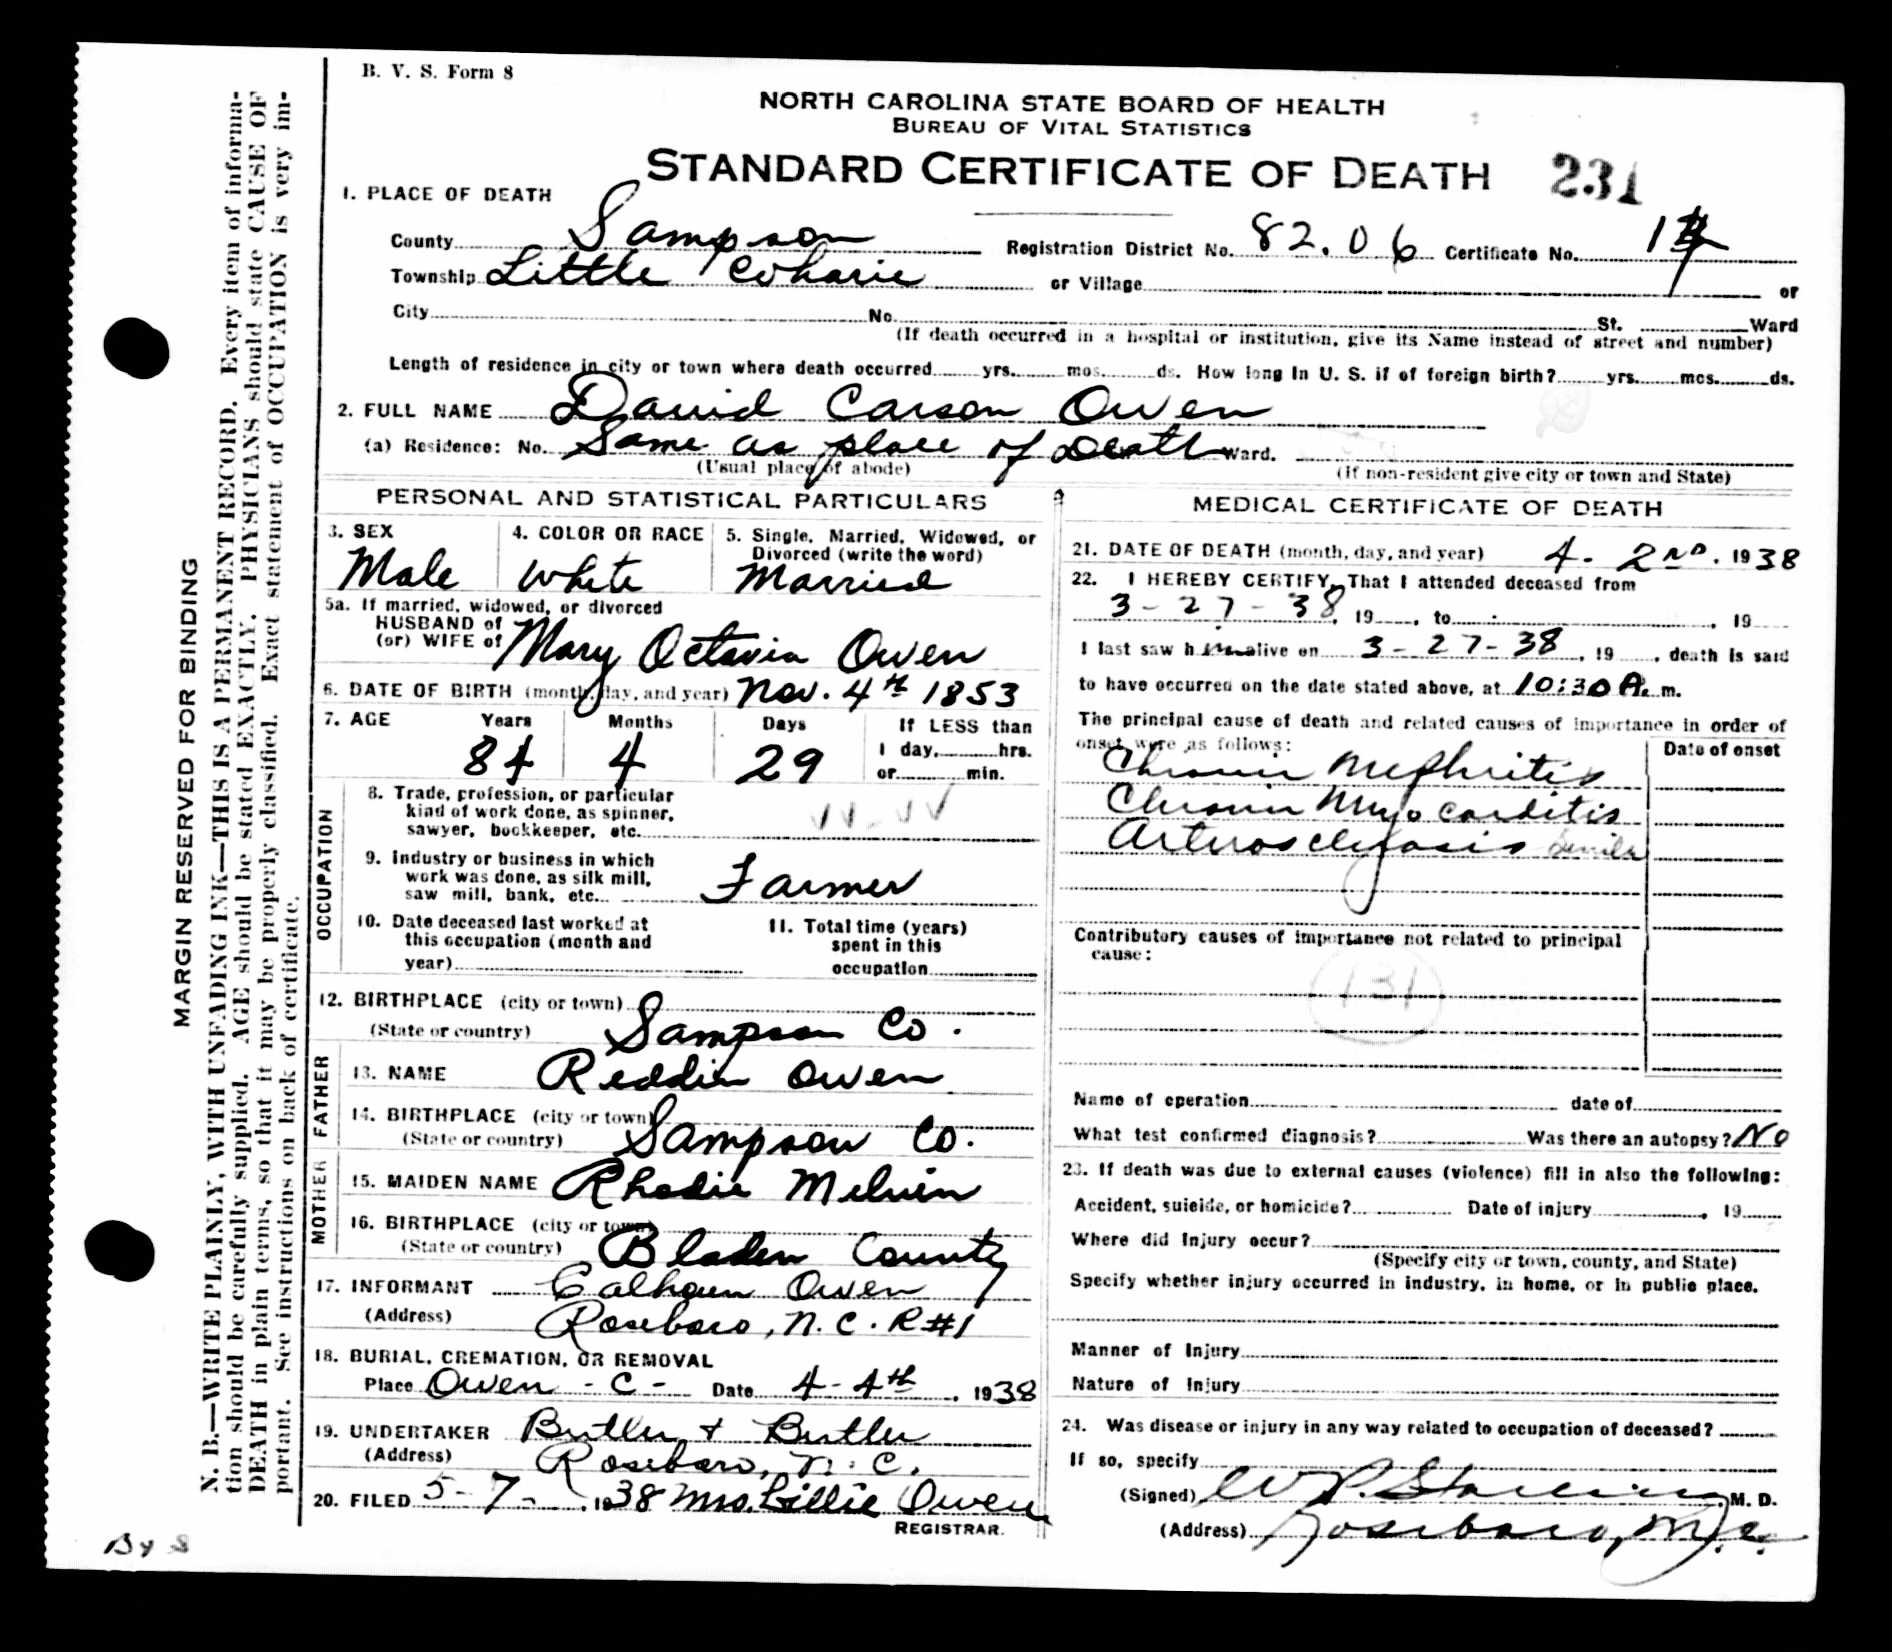 B. V. S. Form 8
NORTH CAROLINA STATE BOARD OF HEALTH
BUREAU OF VITAL STATISTICS
STANDARD CERTIFICATE OF DEATH 231
1. PLACE OF DEATH
County Sampson Registration District No. 82.06 Certificate No.
Township Little Coharie or Village or
City No. St. Ward
(If death occurred in a hospital or institution, give its Name instead of street and number)
Length of residence in city or town where death occurred yrs. mos. ds. How long in U. S. if of foreign birth? yrs. mos. ds.
2. FULL NAME David Carson Owen
(a) Residence: No. Same as place of Death Ward.
(Usual place of abode) (If non-resident give city or town and State)
PERSONAL AND STATISTICAL PARTICULARS
3. SEX 4. COLOR OR RACE 5. Single, Married, Widowed, or
Divorced (write the word)
Male White Married
5a. If married, widowed, or divorced
HUSBAND of
(or) WIFE of Mary Octavia Owen
6. DATE OF BIRTH (month, day, and year) Nov. 4th 1853
7. AGE Years Months Days If LESS than
1 day, hrs.
84 4 29 or min.
OCCUPATION
8. Trade, profession, or particular
kind of work done, as spinner,
sawyer, bookkeeper, etc.
9. Industry or business in which
work was done, as silk mill,
saw mill, bank, etc. Farmer
10. Date deceased last worked at
this occupation (month and
year)
11. Total time (years)
spent in this
occupation
12. BIRTHPLACE (city or town)
(State or country) Sampson Co.
FATHER
13. NAME Reddin Owen
14. BIRTHPLACE (city or town)
(State or country) Sampson Co.
MOTHER
15. MAIDEN NAME Rhodie Melvin
16. BIRTHPLACE (city or town)
(State or country) Bladen County
17. INFORMANT Calhoun Owen
(Address) Roseboro, N. C. R#1
18. BURIAL, CREMATION, OR REMOVAL
Place Owen - C - Date 4-4th, 1938
19. UNDERTAKER Butler & Butler
(Address) Roseboro, N. C.
20. FILED 5-7-, 1938 Mrs. Lillie Owen
REGISTRAR.
MEDICAL CERTIFICATE OF DEATH
21. DATE OF DEATH (month, day, and year) 4. 2nd. 1938
22. I HEREBY CERTIFY, That I attended deceased from
3-27-38, 19, to , 19
I last saw him alive on 3-27-38, 19, death is said
to have occurred on the date stated above, at 10:30 A. m.
The principal cause of death and related causes of importance in order of
onset were as follows: Date of onset
Chronic Nephritis
Chronic Myocarditis
Arterosclerosis Senile
Contributory causes of importance not related to principal
cause:
131
Name of operation date of
What test confirmed diagnosis? Was there an autopsy? No
23. If death was due to external causes (violence) fill in also the following:
Accident, suicide, or homicide? Date of injury , 19
Where did injury occur?
(Specify city or town, county, and State)
Specify whether injury occurred in industry, in home, or in public place.
Manner of Injury
Nature of Injury
24. Was disease or injury in any way related to occupation of deceased?
If so, specify
(Signed) W. P. Starling M. D.
(Address) Roseboro, N. C.
MARGIN RESERVED FOR BINDING
N. B.—WRITE PLAINLY, WITH UNFADING INK—THIS IS A PERMANENT RECORD. Every item of informa-
tion should be carefully supplied. AGE should be stated EXACTLY. PHYSICIANS should state CAUSE OF
DEATH in plain terms, so that it may be properly classified. Exact statement of OCCUPATION is very im-
portant. See instructions on back of certificate.
By S